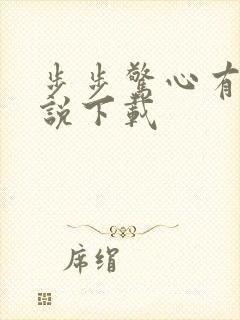 步步驚心有
說下載
席絹